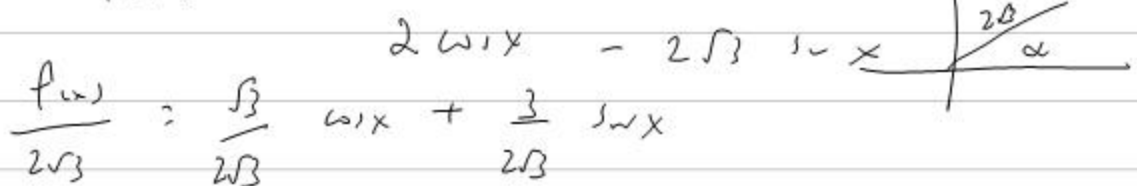 2 cos x - 2√3 sin x
2√3
α
f(x)/2√3 = √3/2√3 cos x + 3/2√3 sin x